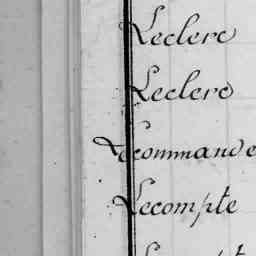 Leclerc
Leclerc
Lecommande
Lecompte